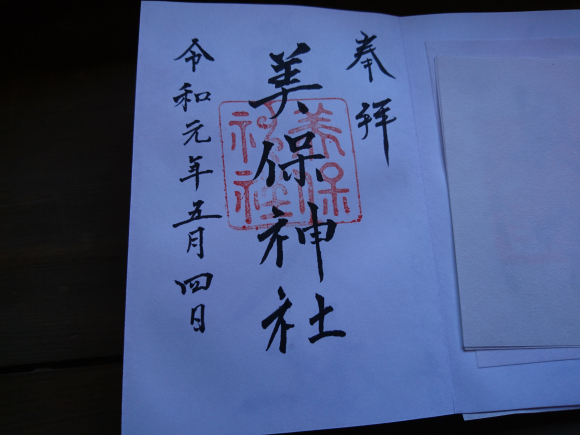 奉拝
美保神社
美保
神社
令和元年五月四日